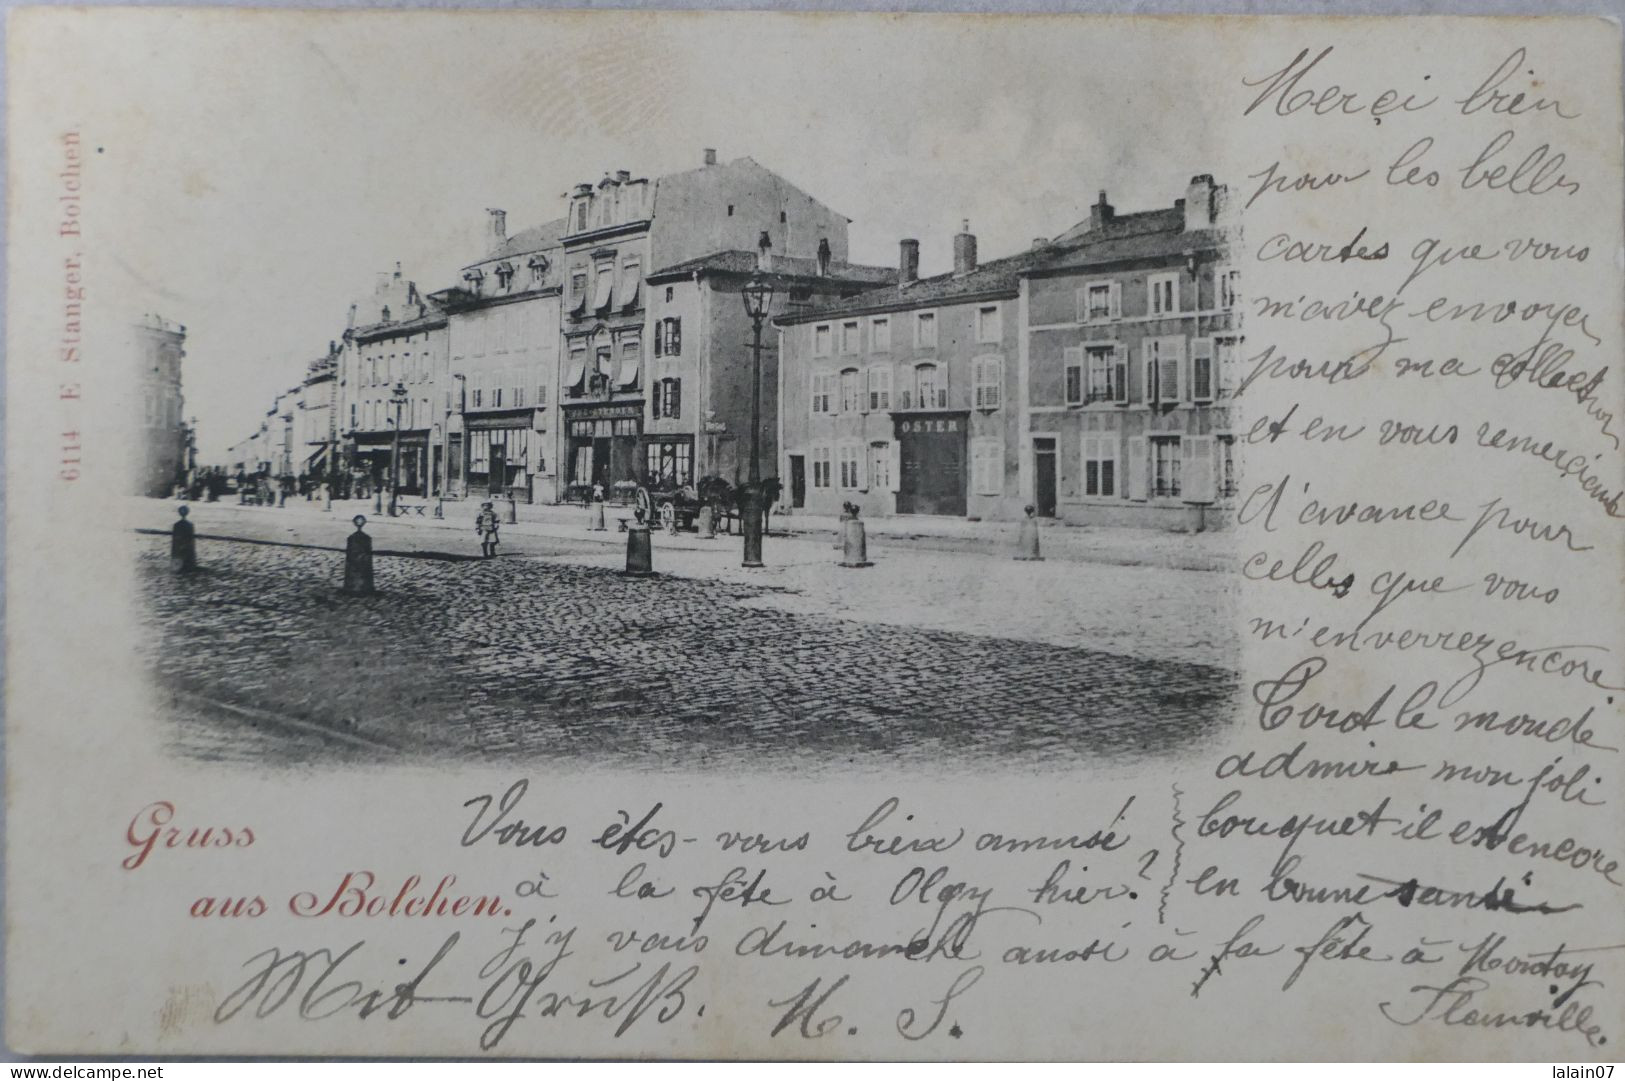 6114 E Stanger, Bolchen.
OSTER
Gruss
aus Bolchen.
Merçi bien
pour les belles
cartes que vous
m'avez envoyer
pour ma collection
et en vous remerçiant
d'avance pour
celles que vous
m'enverrez encore.
Tout le monde
admire mon joli
bouquet il est encore
en bonne santé
Vous êtes-vous bien amusé
à la fête à Olgy hier?
j'y vais dimanche aussi à la fête à Montoy
Flanville.
Mit Gruß. M. S.
lalain07
delcampe.net